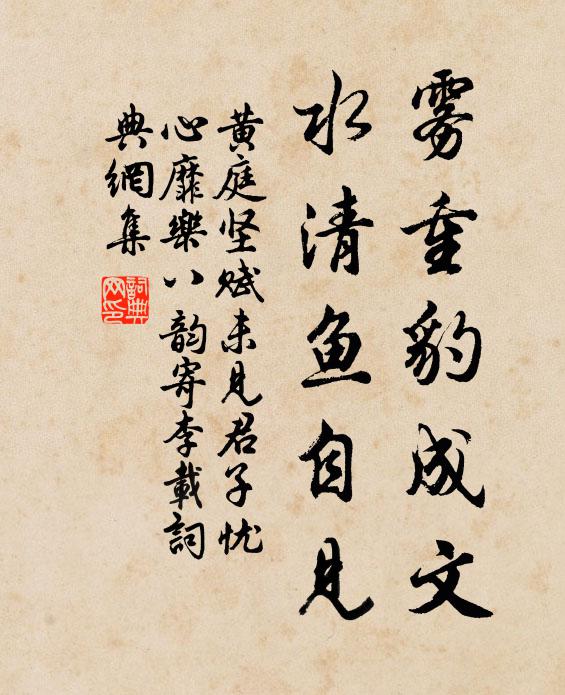 雾重豹成文
水清鱼自见
黄庭坚赋未见君子忧
心靡樂八韵寄李載詞
典網集
詞典
网印